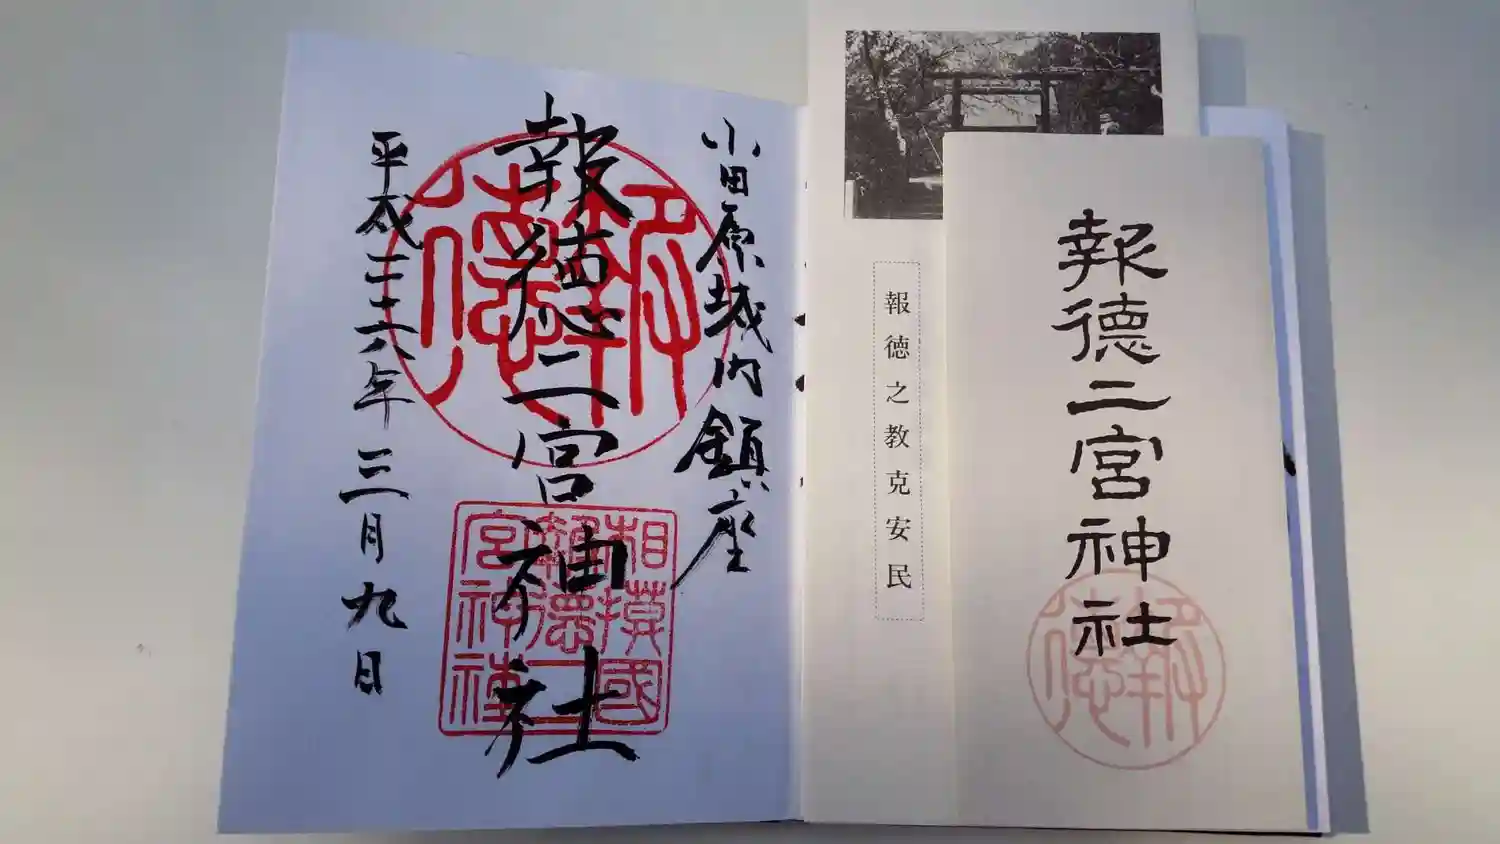 小田原城内鎮座
報徳二宮神社
平成二十六年三月九日
報徳
相模國
報徳二
宮神社
報徳二宮神社
報徳
報徳之教克安民